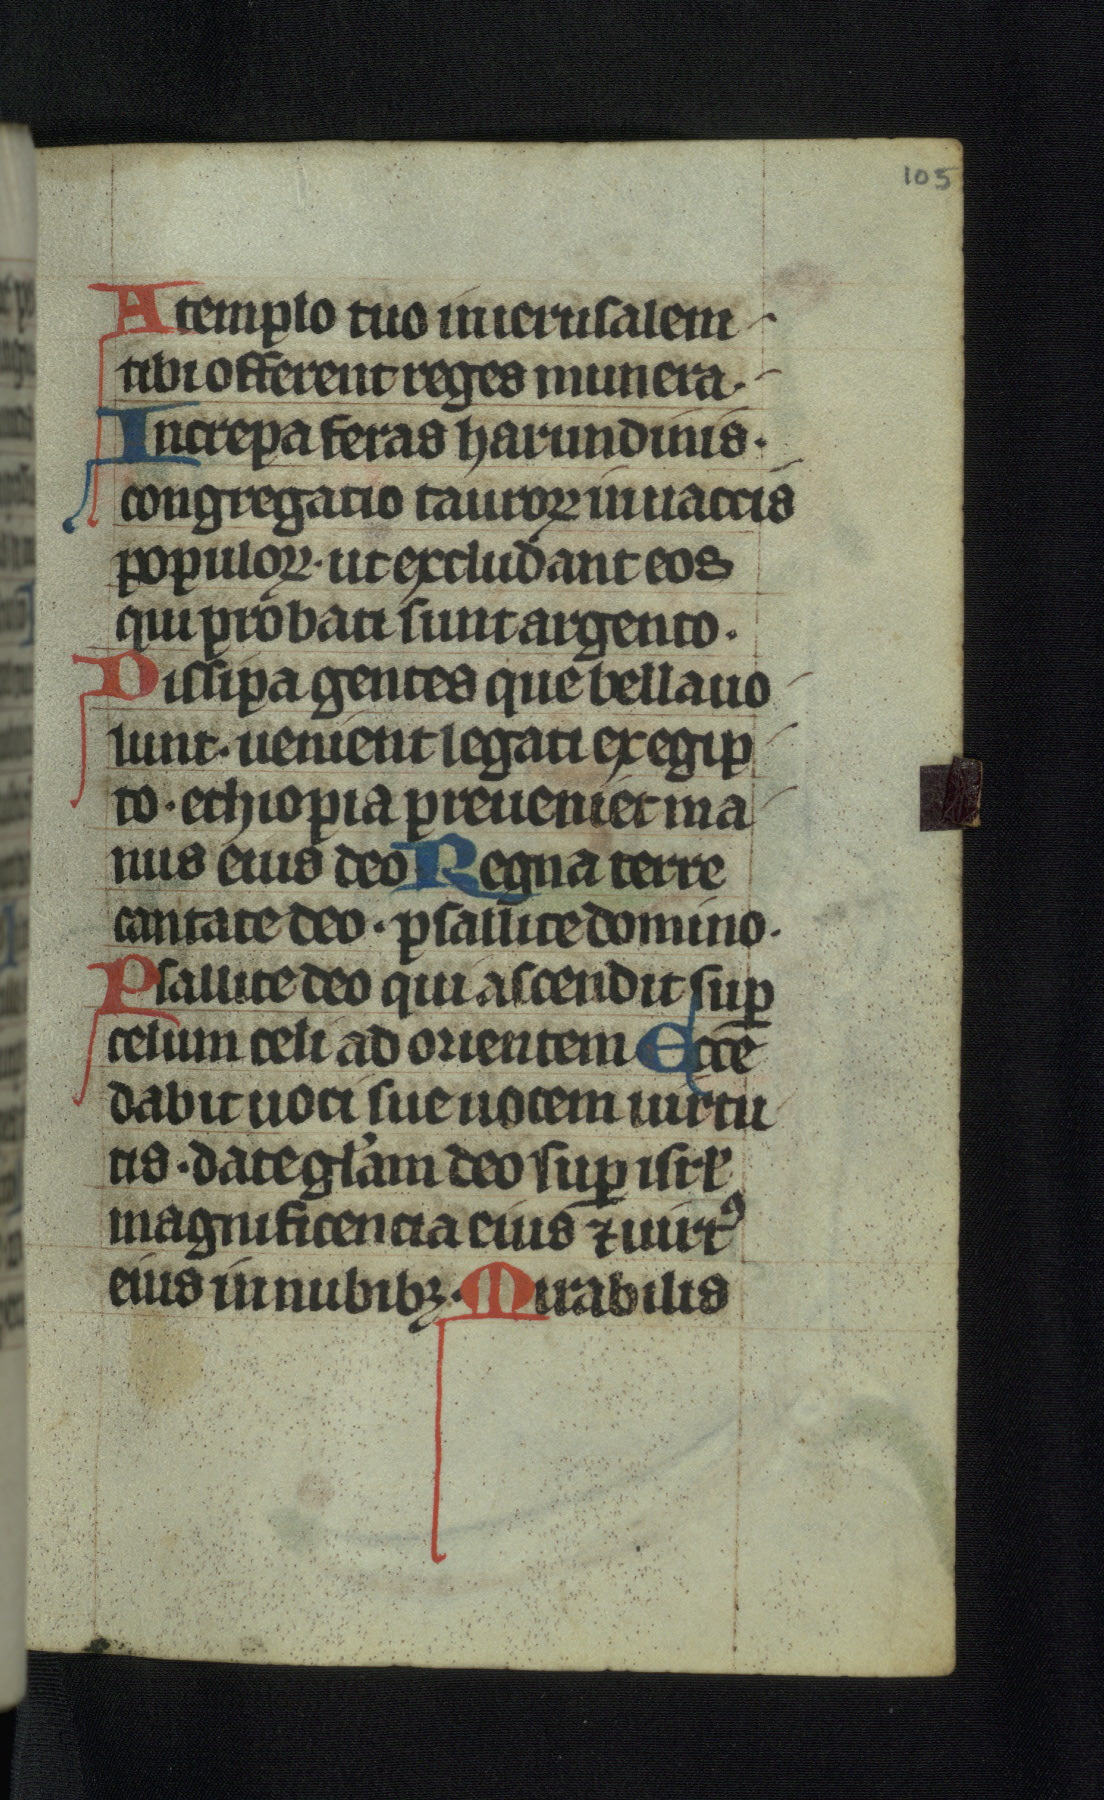 105
A templo tuo in ierusalem -
tibi offerent reges munera. -
Increpa feras harundinis.
congregatio tauroꝝ in uaccis
populoꝝ. ut excludant eos
qui probati sunt argento.
Dissipa gentes que bella uo -
lunt. uenient legati ex egip -
to. ethiopia preueniet ma -
nus eius deo Regna terre
cantate deo. psallite domino.
Psallite deo qui ascendit suꝑ
celum celi ad orientem Ecce
dabit uoci sue uocem uirtu
tis. date gl̓am deo suꝑ isrl̓
magnificencia eius ⁊ uirtꝰ
eius in nubibꝫ. Mirabilis